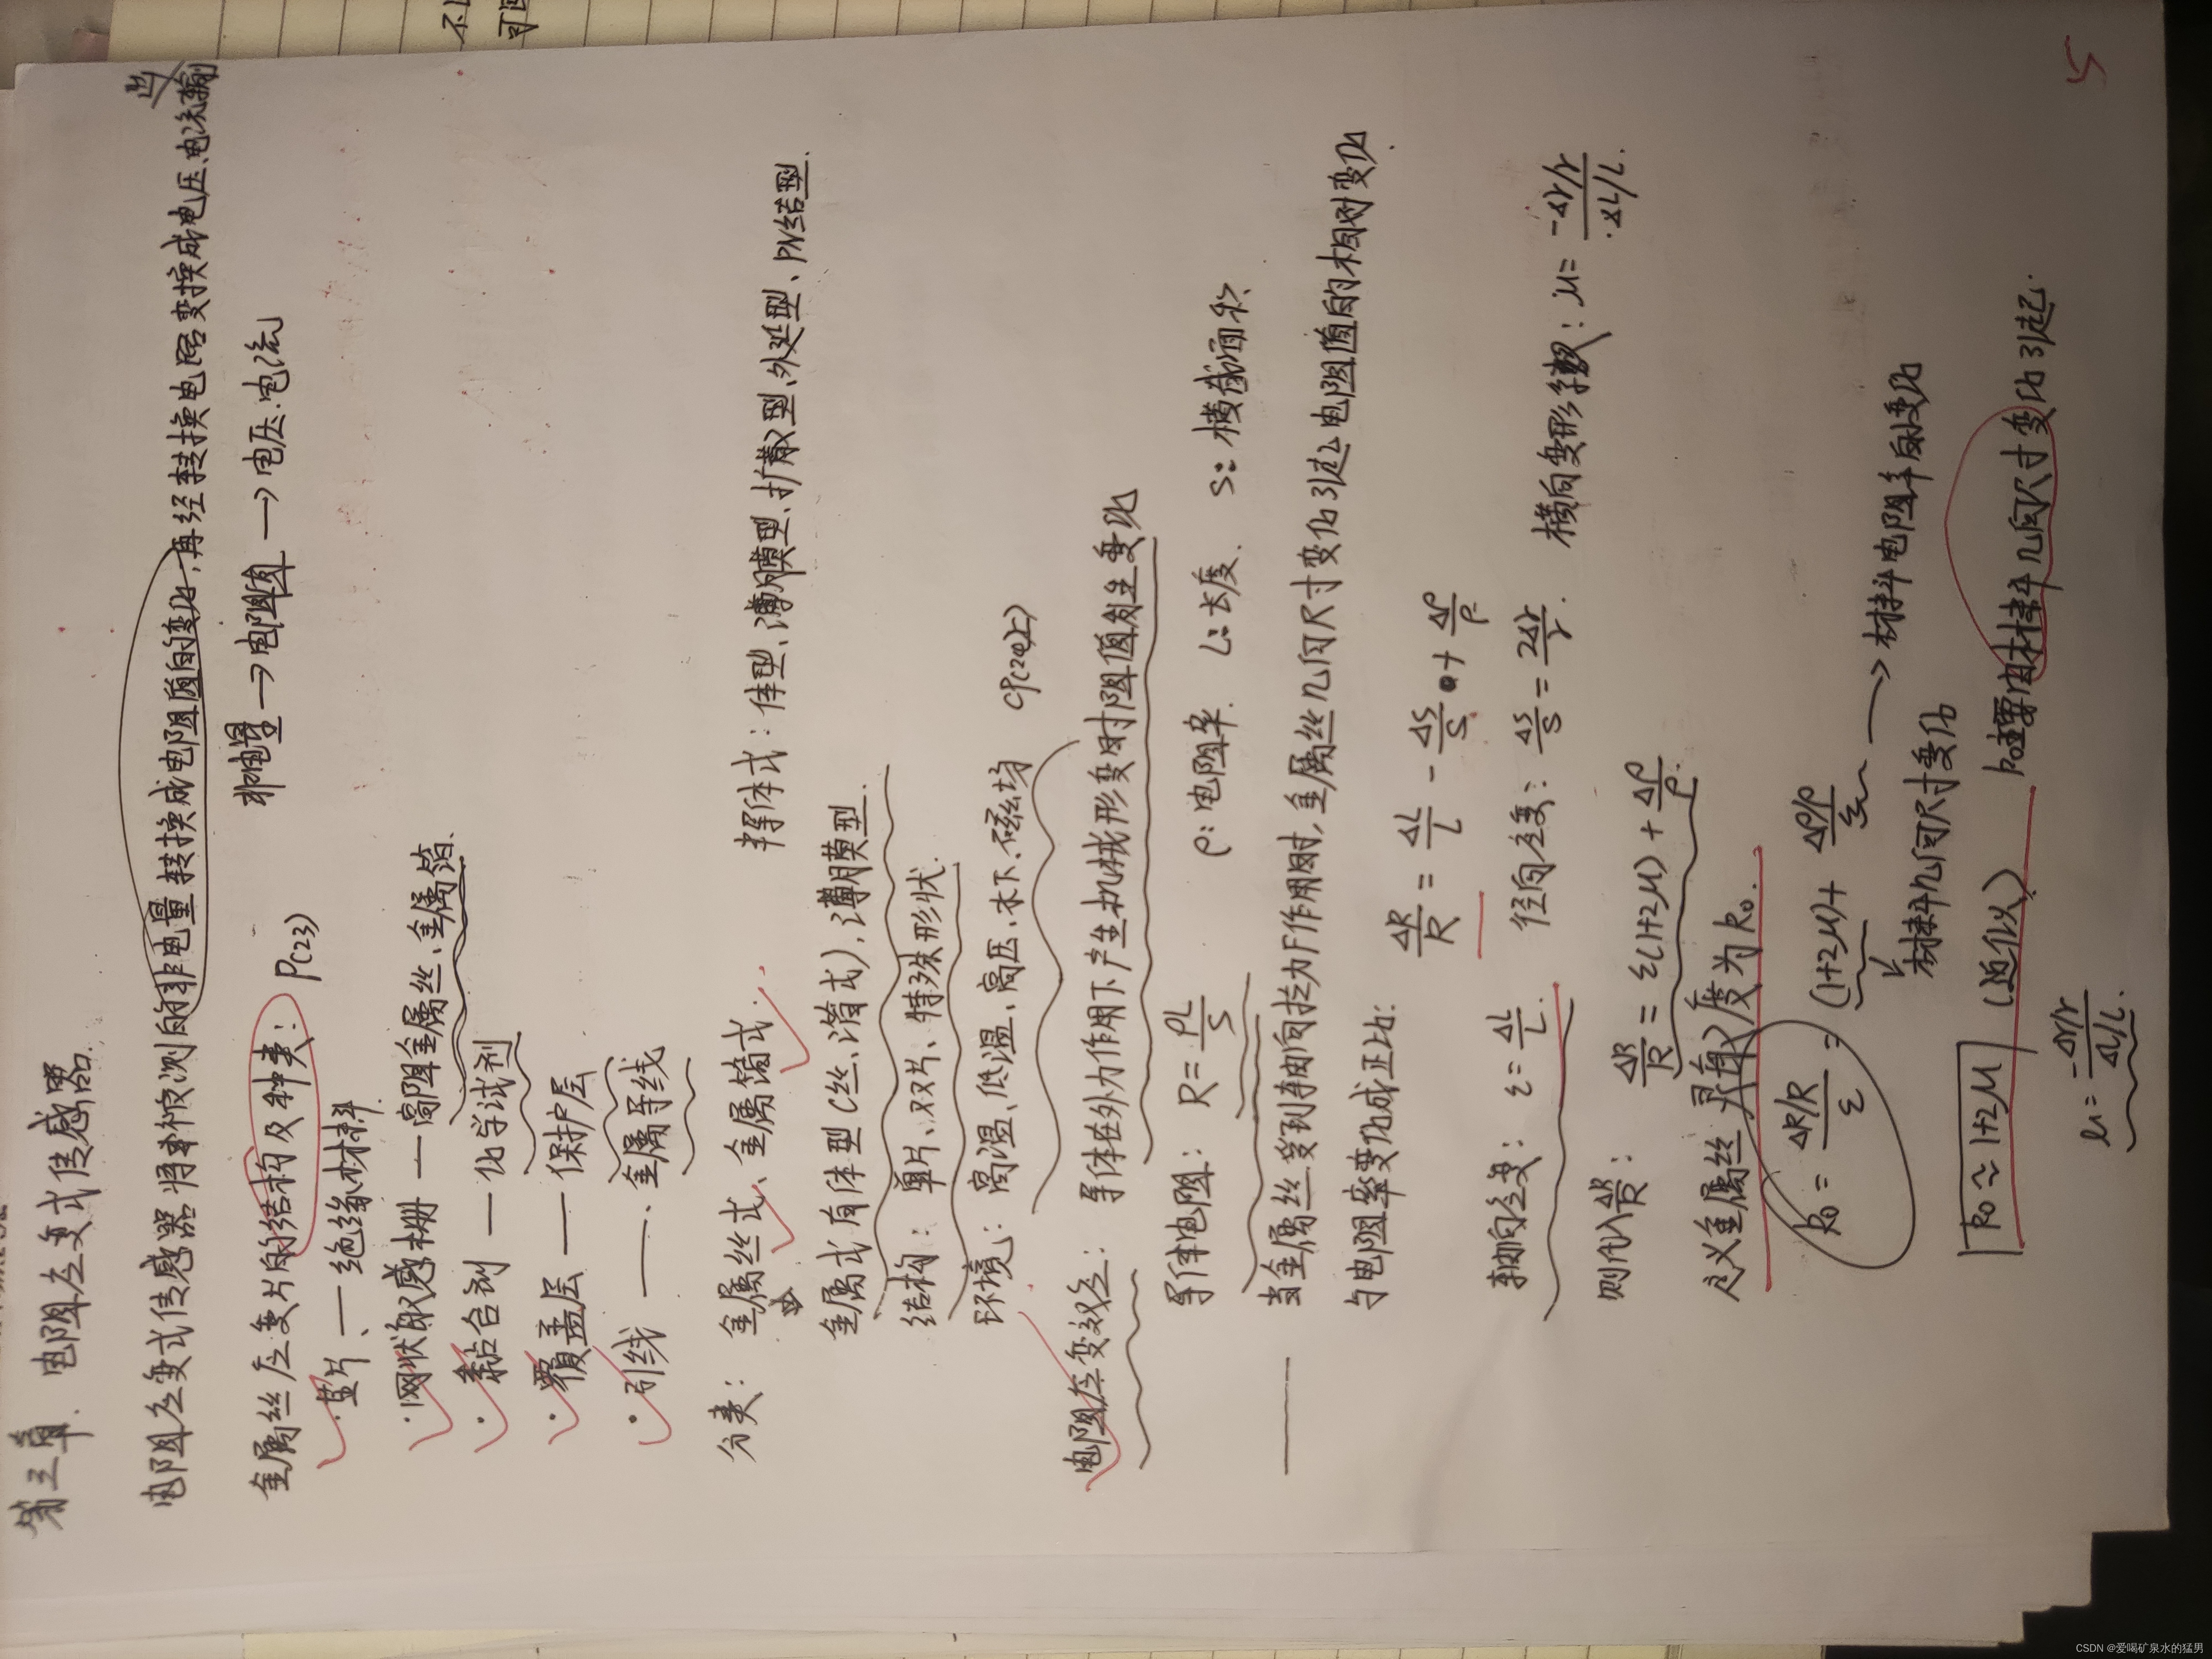 第三章. 电阻应变式传感器.
电阻应变式传感器将被测的非电量转换成电阻值的变化,再经转换电路变换成电压.电流输出
非电量→电阻→电压.电流
金属丝应变片的结构及种类: P(23)
·基片、—绝缘材料.
·网状敏感栅—高阻金属丝、金属箔.
·黏合剂—化学试剂
·覆盖层—保护层
·引线—、金属导线
分类: 金属丝式、金属箔式. 半导体式:体型、薄膜型、扩散型、外延型、PN结型.
金属式有体型(丝、箔式),薄膜型.
结构: 单片、双片、特殊形状.
环境: 高温、低温、高压、水下、磁场 (P(24)上)
电阻应变效应: 导体在外力作用下产生机械形变时阻值发生变化
导体电阻: R=ρL/S ρ:电阻率. L:长度. S:横截面积.
当金属丝受到轴向拉力F作用时,金属丝几何尺寸变化引起电阻值的相对变化.
与电阻率变化成正比: ΔR/R = ΔL/L - ΔS/S + Δρ/ρ
轴向应变: ε=ΔL/L. 径向应变: ΔS/S=2Δr/r. 横向变形系数: μ=-Δr/r/ΔL/L.
则代入ΔR/R: ΔR/R = ε(1+2μ) + Δρ/ρ.
定义金属丝灵敏度为k₀.
k₀ = ΔR/R/ε = (1+2μ) + Δρ/ρ/ε → 材料电阻率的变化
材料几何尺寸变化
k₀≈1+2μ (近似) k₀主要由材料几何尺寸变化引起.
μ=-Δr/r/ΔL/L.
5
CSDN @爱喝矿泉水的猛男